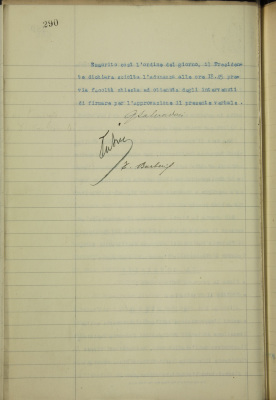 290
Esaurito così l'ordine del giorno, il Presiden-
te dichiara sciolta l'adunanza alle ore 18.45 pre-
via facoltà chiesta ed ottenuta dagli intervenuti
di firmare per l'approvazione il presente verbale.